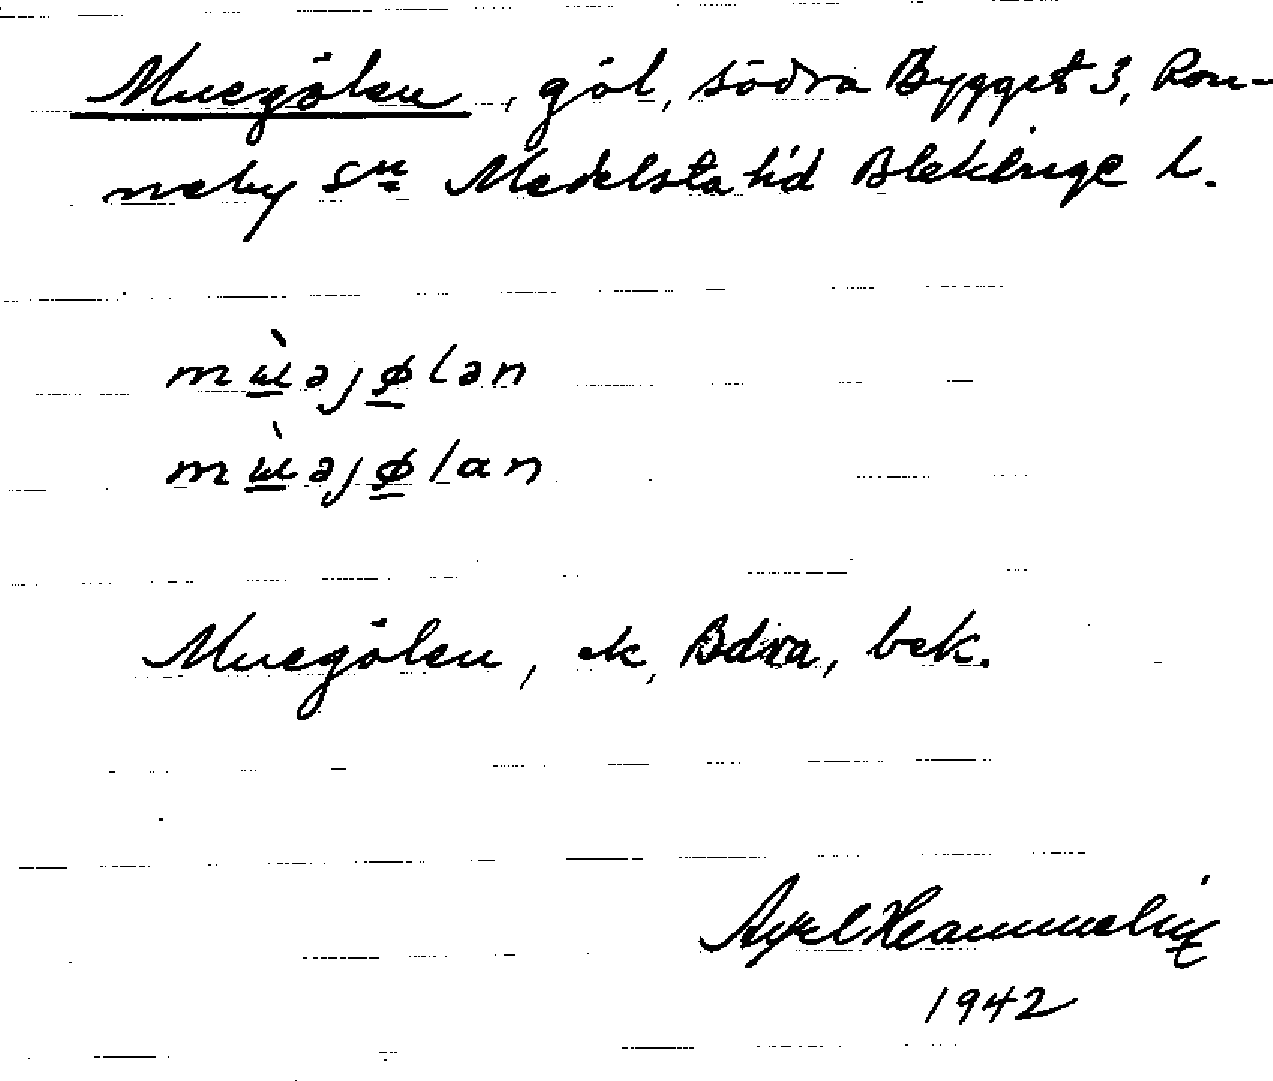 Muegölen, göl, södra Bygget 3, Ron-
neby sn Medelsta hd Blekinge l.
mɯ̀əjølən
mɯ̀əjølan
Muegölen, ek, Bdra, bek.
Axel Hammelin
1942